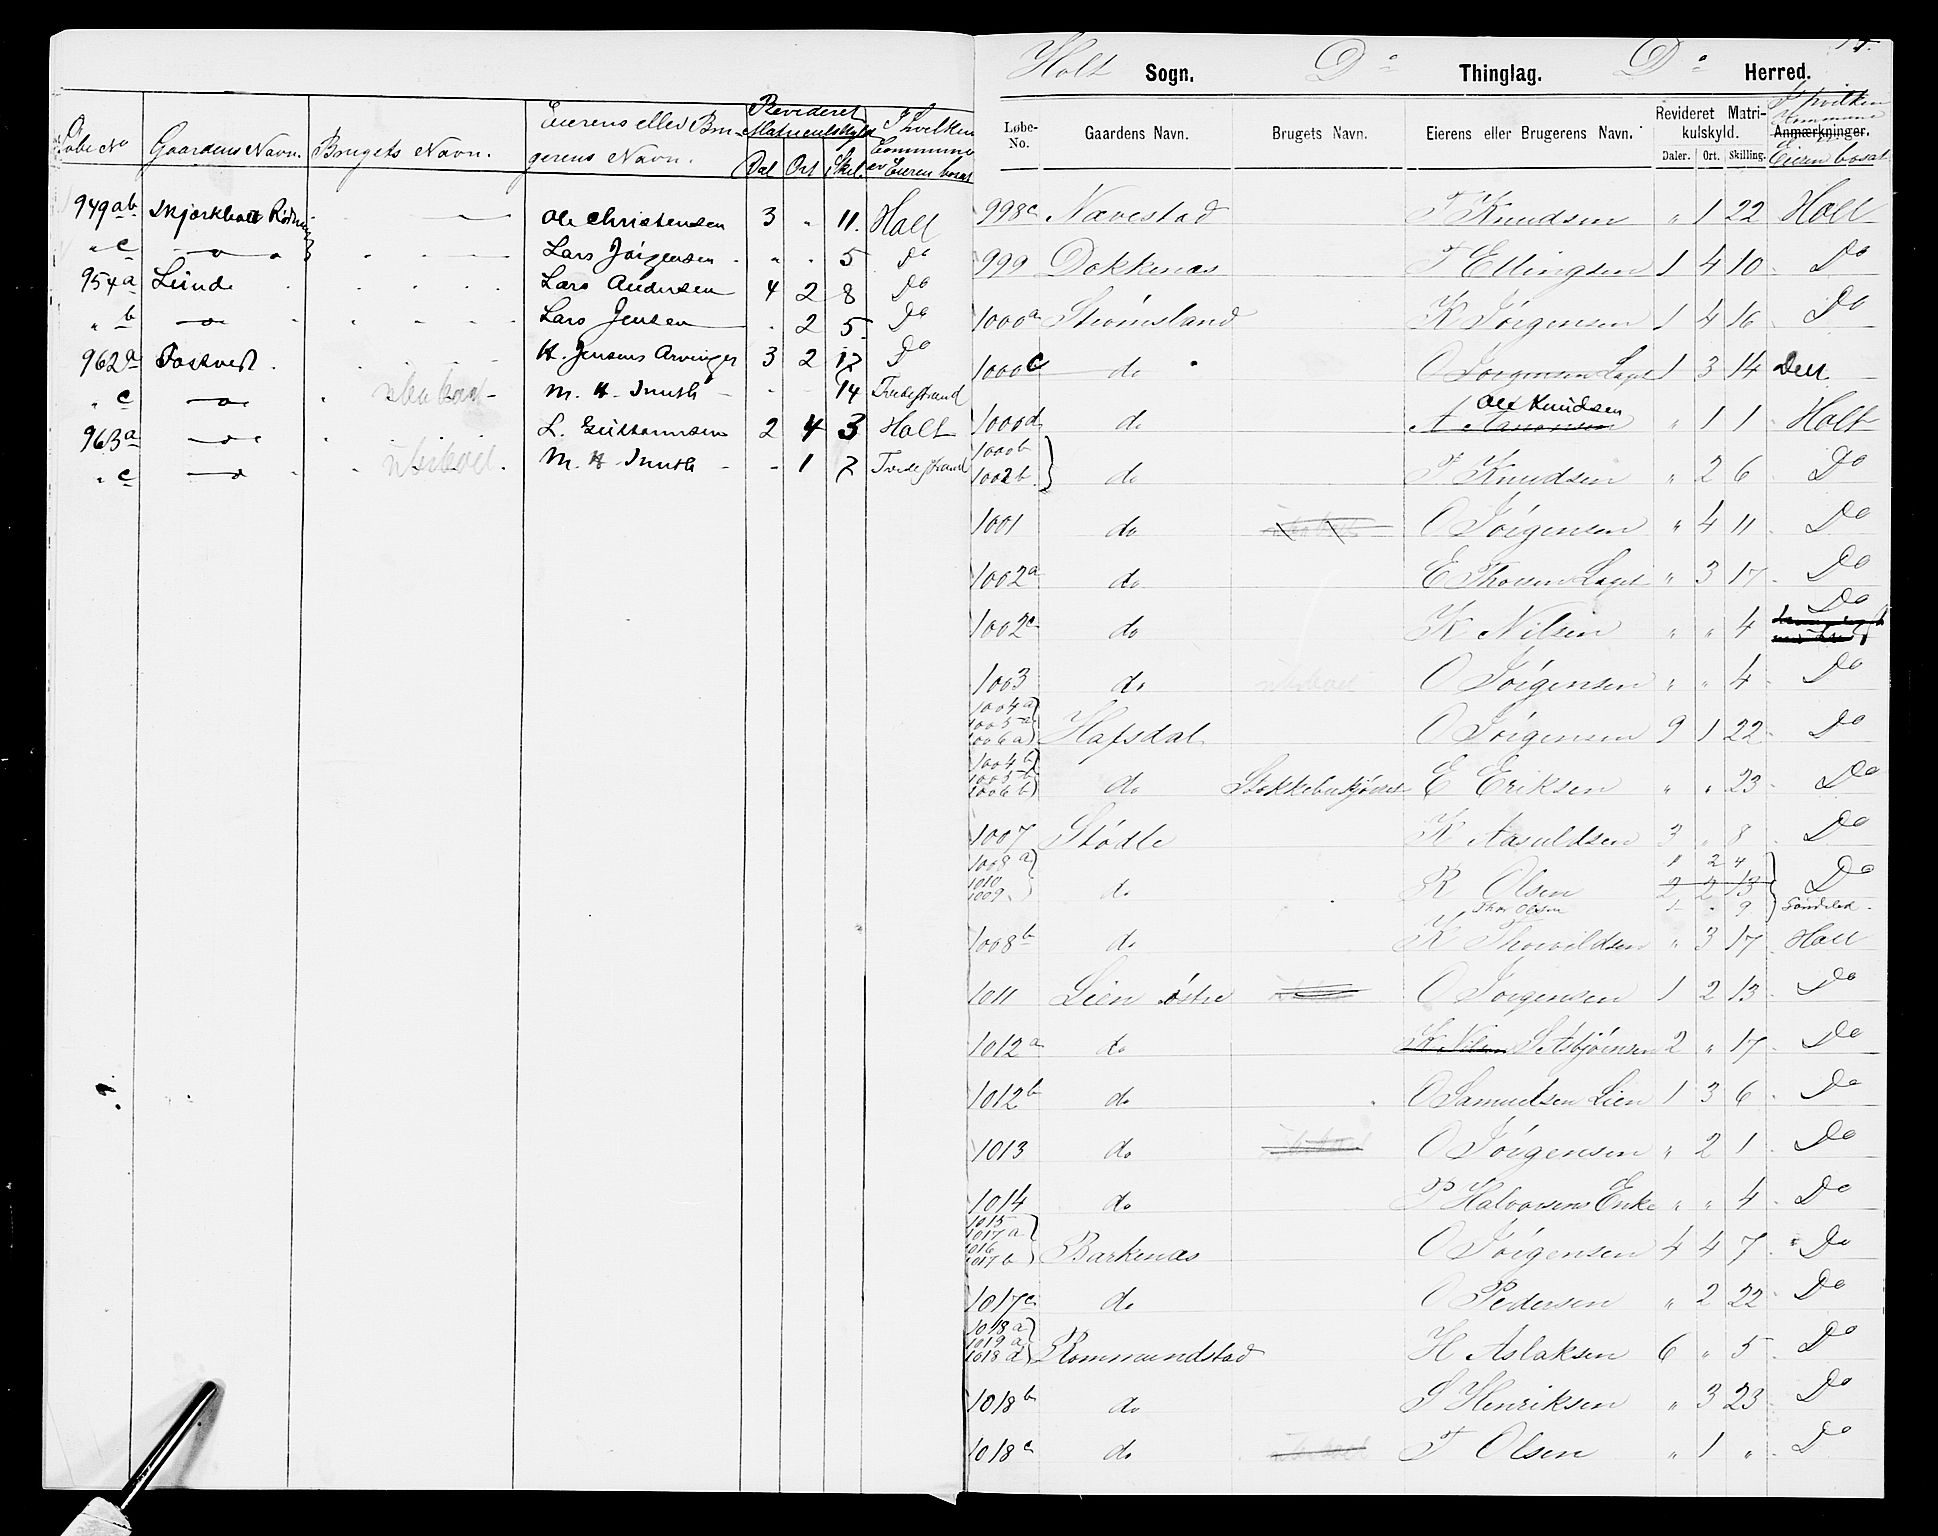 Løbe No Gaardens Navn. Brugets Navn. Eierens eller Bru-gerens Navn. Revideret Matriculskyld Dal Ort Skil. I hvilken Commune er Eieren bosat
949ab Ole Christensen 3 " 11. Holt
" c —o— Lars Jörgensen " . 5 Do
954a Lunde Lars Andersen 4 2 8 Do
" b —o— Lars Jensen . 2 5 Do
962a Foskvedt K. Jensens Arvinger 3 2 12 Do
" c —o— ubeboet M. K. Smith - - 14 Tvedestrand
963a —o— L. Guttormsen 2 4 3 Holt
" c —o— ubeboet. M. K. Smith - 1 2 Tvedestrand
Holt Sogn. Do Thinglag. Do Herred.
Løbe-No. Gaardens Navn. Brugets Navn. Eierens eller Brugerens Navn. Revideret Matri-kulskyld. Daler. Ort. Skilling. Anmærkninger. I hvilken Kommune er Eieren bosat
998c Nævestad T Knudsen " 1 22 Holt
999 Dokkenæs T Ellingsen 1 4 10 Do
1000a Strømsland K Jörgensen 1 4 16 Do
1000c do O Jörgensen Laget 1 3 14
1000d do Ole Knudsen A Aanonsen " 1 1 Holt
1000b 1002b do T Knudsen " 2 6 Do
1001 do ubeboet O Jörgensen " 4 11 Do
1002a do E Thorsen Laget " 3 17 Do
1002c do K Nilsen " " 4 Do
1003 do ubeboet O Jörgensen " " 4 Do
1004a 1005a 1006a Hafsdal O Jörgensen 9 1 22 Do
1004b 1005b 1006b do E Eriksen " " 23 Do
1007 Stödle K Aasuldsen 3 " 8 Do
1008a 1010 1009 do R Olsen 1 2 4 2 2 13 Do
Thor Olsen 1 " 9 Söndeled
1008b do K Thorvildsen " 3 17 Holt
1011 Lien östre O Jörgensen 1 2 13 Do
1012a do K Nilsen S Asbjörnsen 2 " 17 Do
1012b do O Samuelsen Lien 1 3 6 Do
1013 do ubeboet O Jörgensen " 2 1 Do
1014 do P Halvorsens Enke " " 4 Do
1015 1017a 1016 1017b Barkenæs O Jörgensen 4 4 7 Do
1017c do O Pedersen " 2 22 Do
1018a 1019a 1018d Rommundstad H Aslaksen 6 " 5 Do
1018b do S Henriksen " 3 23 Do
1018c do ubeboet T Olsen " 1 " Do